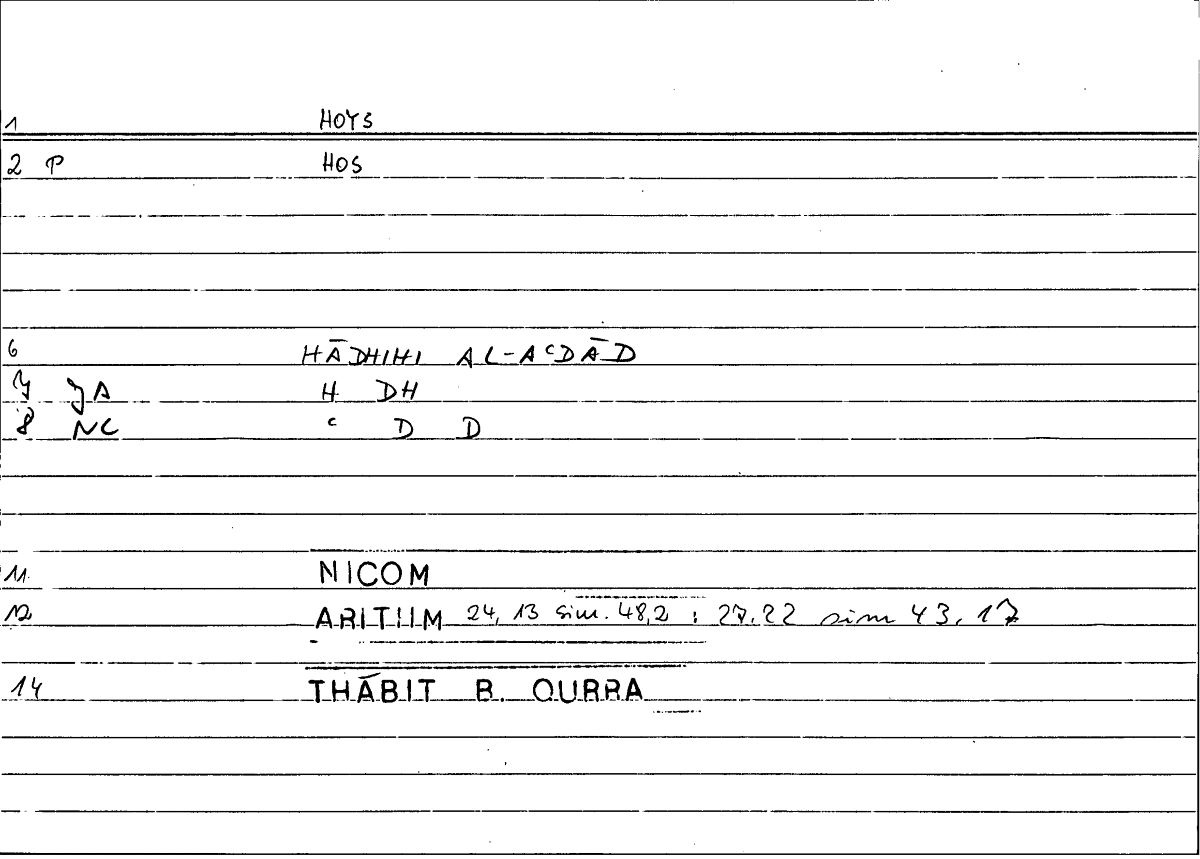 1 HOYS
2 P HOS
6 HĀDHIHI AL-AᶜDĀD
7 JA H DH
8 NC ᶜ D D
11 NICOM
12 ARITHM 24, 13 sim. 48,2 : 27.22 sim 43, 17
14 THĀBIT B. QURRA